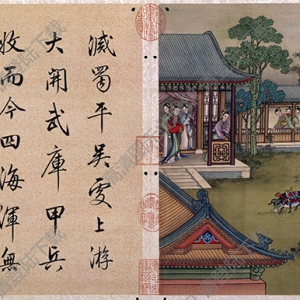 滅蜀平吴上游
大開武庫甲兵
收而今四海渾無